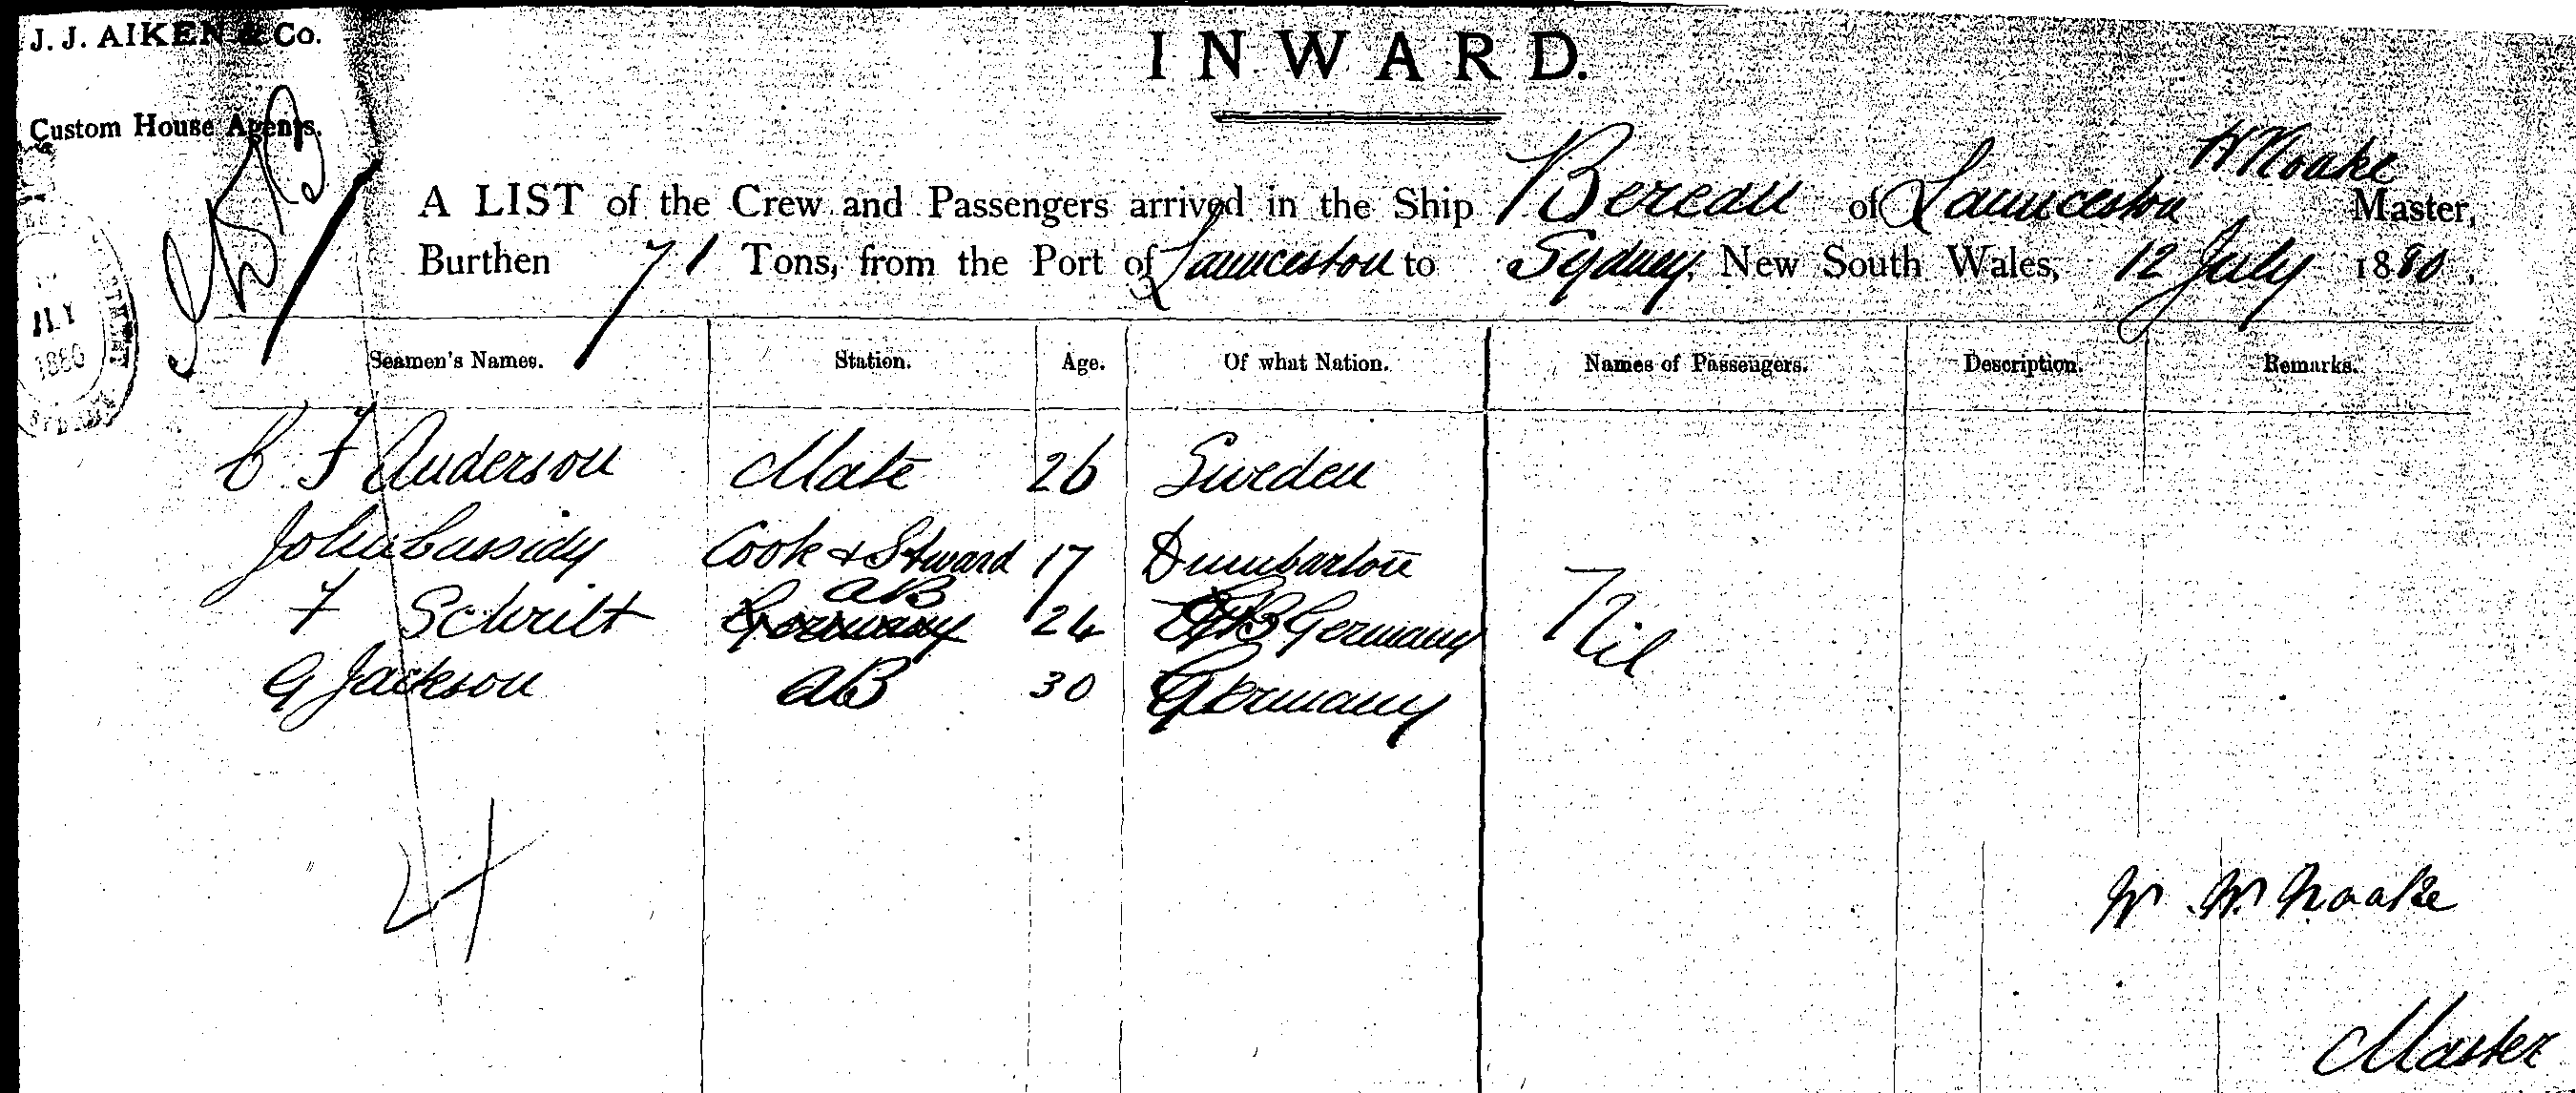 J. J. AIKEN & Co.
Custom House Agents.
INWARD.
W Noake
A LIST of the Crew and Passengers arrived in the Ship Bereau of Launceston Master,
Burthen 71 Tons, from the Port of Launceston to Sydney, New South Wales, 12 July 1880.
JLY
1880
Seamen's Names. Station. Age. Of what Nation. Names of Passengers. Description. Remarks.
C F Anderson Mate 26 Sweden
John Cassidy Cook & Steward 17 Dumbarton
F AB 24 Germany Nil
G Jackson AB 30 Germany
4
W. W. Noake
Master